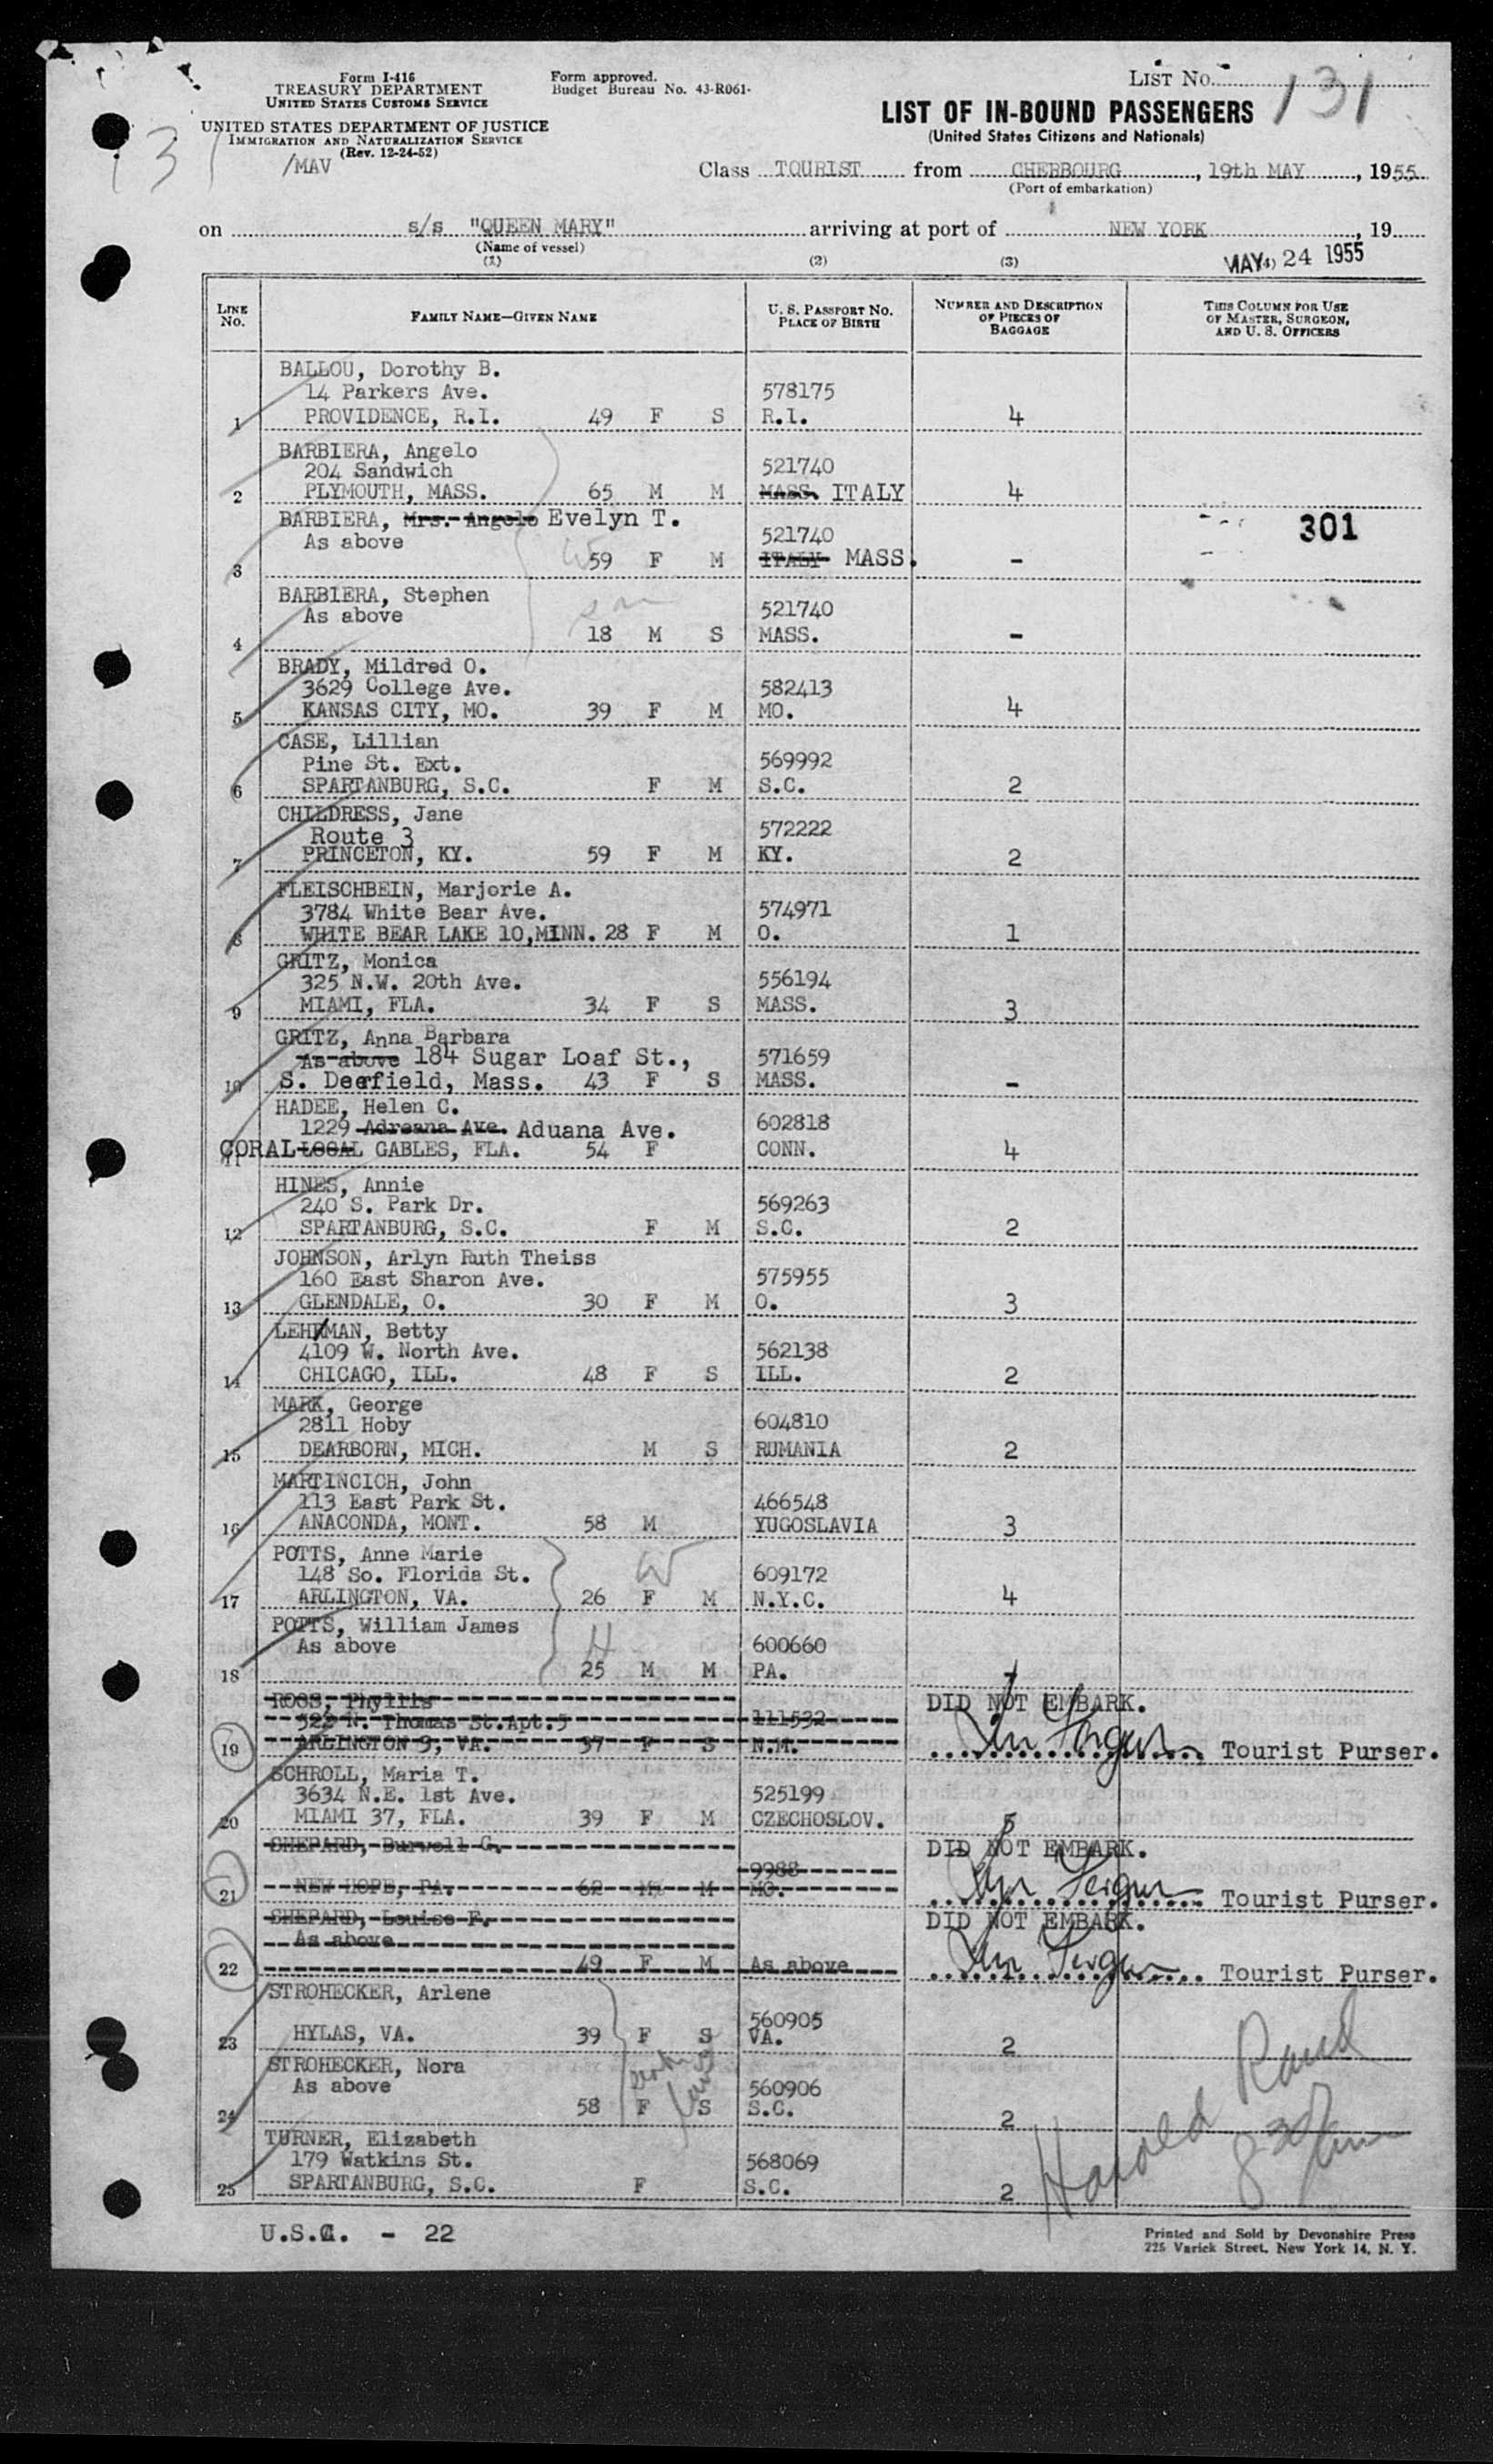 Form I-416
TREASURY DEPARTMENT
UNITED STATES CUSTOMS SERVICE
UNITED STATES DEPARTMENT OF JUSTICE
IMMIGRATION AND NATURALIZATION SERVICE
(Rev. 12-24-52)
/MAV
131
Form approved.
Budget Bureau No. 43-R061.
LIST No. 131
LIST OF IN-BOUND PASSENGERS
(United States Citizens and Nationals)
Class TOURIST from CHERBOURG, 19th MAY, 1955
(Port of embarkation)
on s/s "QUEEN MARY" arriving at port of NEW YORK, 19
(Name of vessel)
MAY 24 1955
(1) (2) (3) (4)
LINE No. FAMILY NAME—GIVEN NAME U. S. PASSPORT NO. PLACE OF BIRTH NUMBER AND DESCRIPTION OF PIECES OF BAGGAGE THIS COLUMN FOR USE OF MASTER, SURGEON, AND U. S. OFFICERS
BALLOU, Dorothy B.
14 Parkers Ave. 578175
1 PROVIDENCE, R.I. 49 F S R.I. 4
BARBIERA, Angelo
204 Sandwich 521740
2 PLYMOUTH, MASS. 65 M M MASS. ITALY 4
BARBIERA, Mrs. Angelo Evelyn T.
As above 521740 301
3 W 59 F M ITALY MASS. -
BARBIERA, Stephen
As above son 521740
4 18 M S MASS. -
BRADY, Mildred O.
3629 College Ave. 582413
5 KANSAS CITY, MO. 39 F M MO. 4
CASE, Lillian
Pine St. Ext. 569992
6 SPARTANBURG, S.C. F M S.C. 2
CHILDRESS, Jane
Route 3 572222
7 PRINCETON, KY. 59 F M KY. 2
FLEISCHBEIN, Marjorie A.
3784 White Bear Ave. 574971
8 WHITE BEAR LAKE 10, MINN. 28 F M O. 1
GRITZ, Monica
325 N.W. 20th Ave. 556194
9 MIAMI, FLA. 34 F S MASS. 3
GRITZ, Anna Barbara
As above 184 Sugar Loaf St., 571659
10 S. Deerfield, Mass. 43 F S MASS. -
HADEE, Helen C.
1229 Adreana Ave. Aduana Ave. 602818
11 CORAL LOCAL GABLES, FLA. 54 F CONN. 4
HINES, Annie
240 S. Park Dr. 569263
12 SPARTANBURG, S.C. F M S.C. 2
JOHNSON, Arlyn Ruth Theiss
160 East Sharon Ave. 575955
13 GLENDALE, O. 30 F M O. 3
LEHRMAN, Betty
4109 W. North Ave. 562138
14 CHICAGO, ILL. 48 F S ILL. 2
MARK, George
2811 Hoby 604810
15 DEARBORN, MICH. M S RUMANIA 2
MARTINCICH, John
113 East Park St. 466548
16 ANACONDA, MONT. 58 M YUGOSLAVIA 3
POTTS, Anne Marie
148 So. Florida St. W 609172
17 ARLINGTON, VA. 26 F M N.Y.C. 4
POTTS, William James
As above H 600660
18 25 M M PA. -
ROOS, Phyllis DID NOT EMBARK.
522 N. Thomas St. Apt.5 111532
19 ARLINGTON 3, VA. 37 F S N.M. Tourist Purser.
SCHROLL, Maria T.
3634 N.E. 1st Ave. 525199
20 MIAMI 37, FLA. 39 F M CZECHOSLOV. 5
SHEPARD, Burwell G. DID NOT EMBARK.
9988
21 NEW HOPE, PA. 62 M M MO. Tourist Purser.
SHEPARD, Louise F. DID NOT EMBARK.
As above
22 49 F M As above Tourist Purser.
STROHECKER, Arlene
560905
23 HYLAS, VA. 39 F S VA. 2
STROHECKER, Nora
As above 560906
24 58 F S S.C. 2
TURNER, Elizabeth
179 Watkins St. 568069
25 SPARTANBURG, S.C. F S.C. 2
Harold Rand
U.S.C. - 22
Printed and Sold by Devonshire Press
225 Varick Street, New York 14, N. Y.